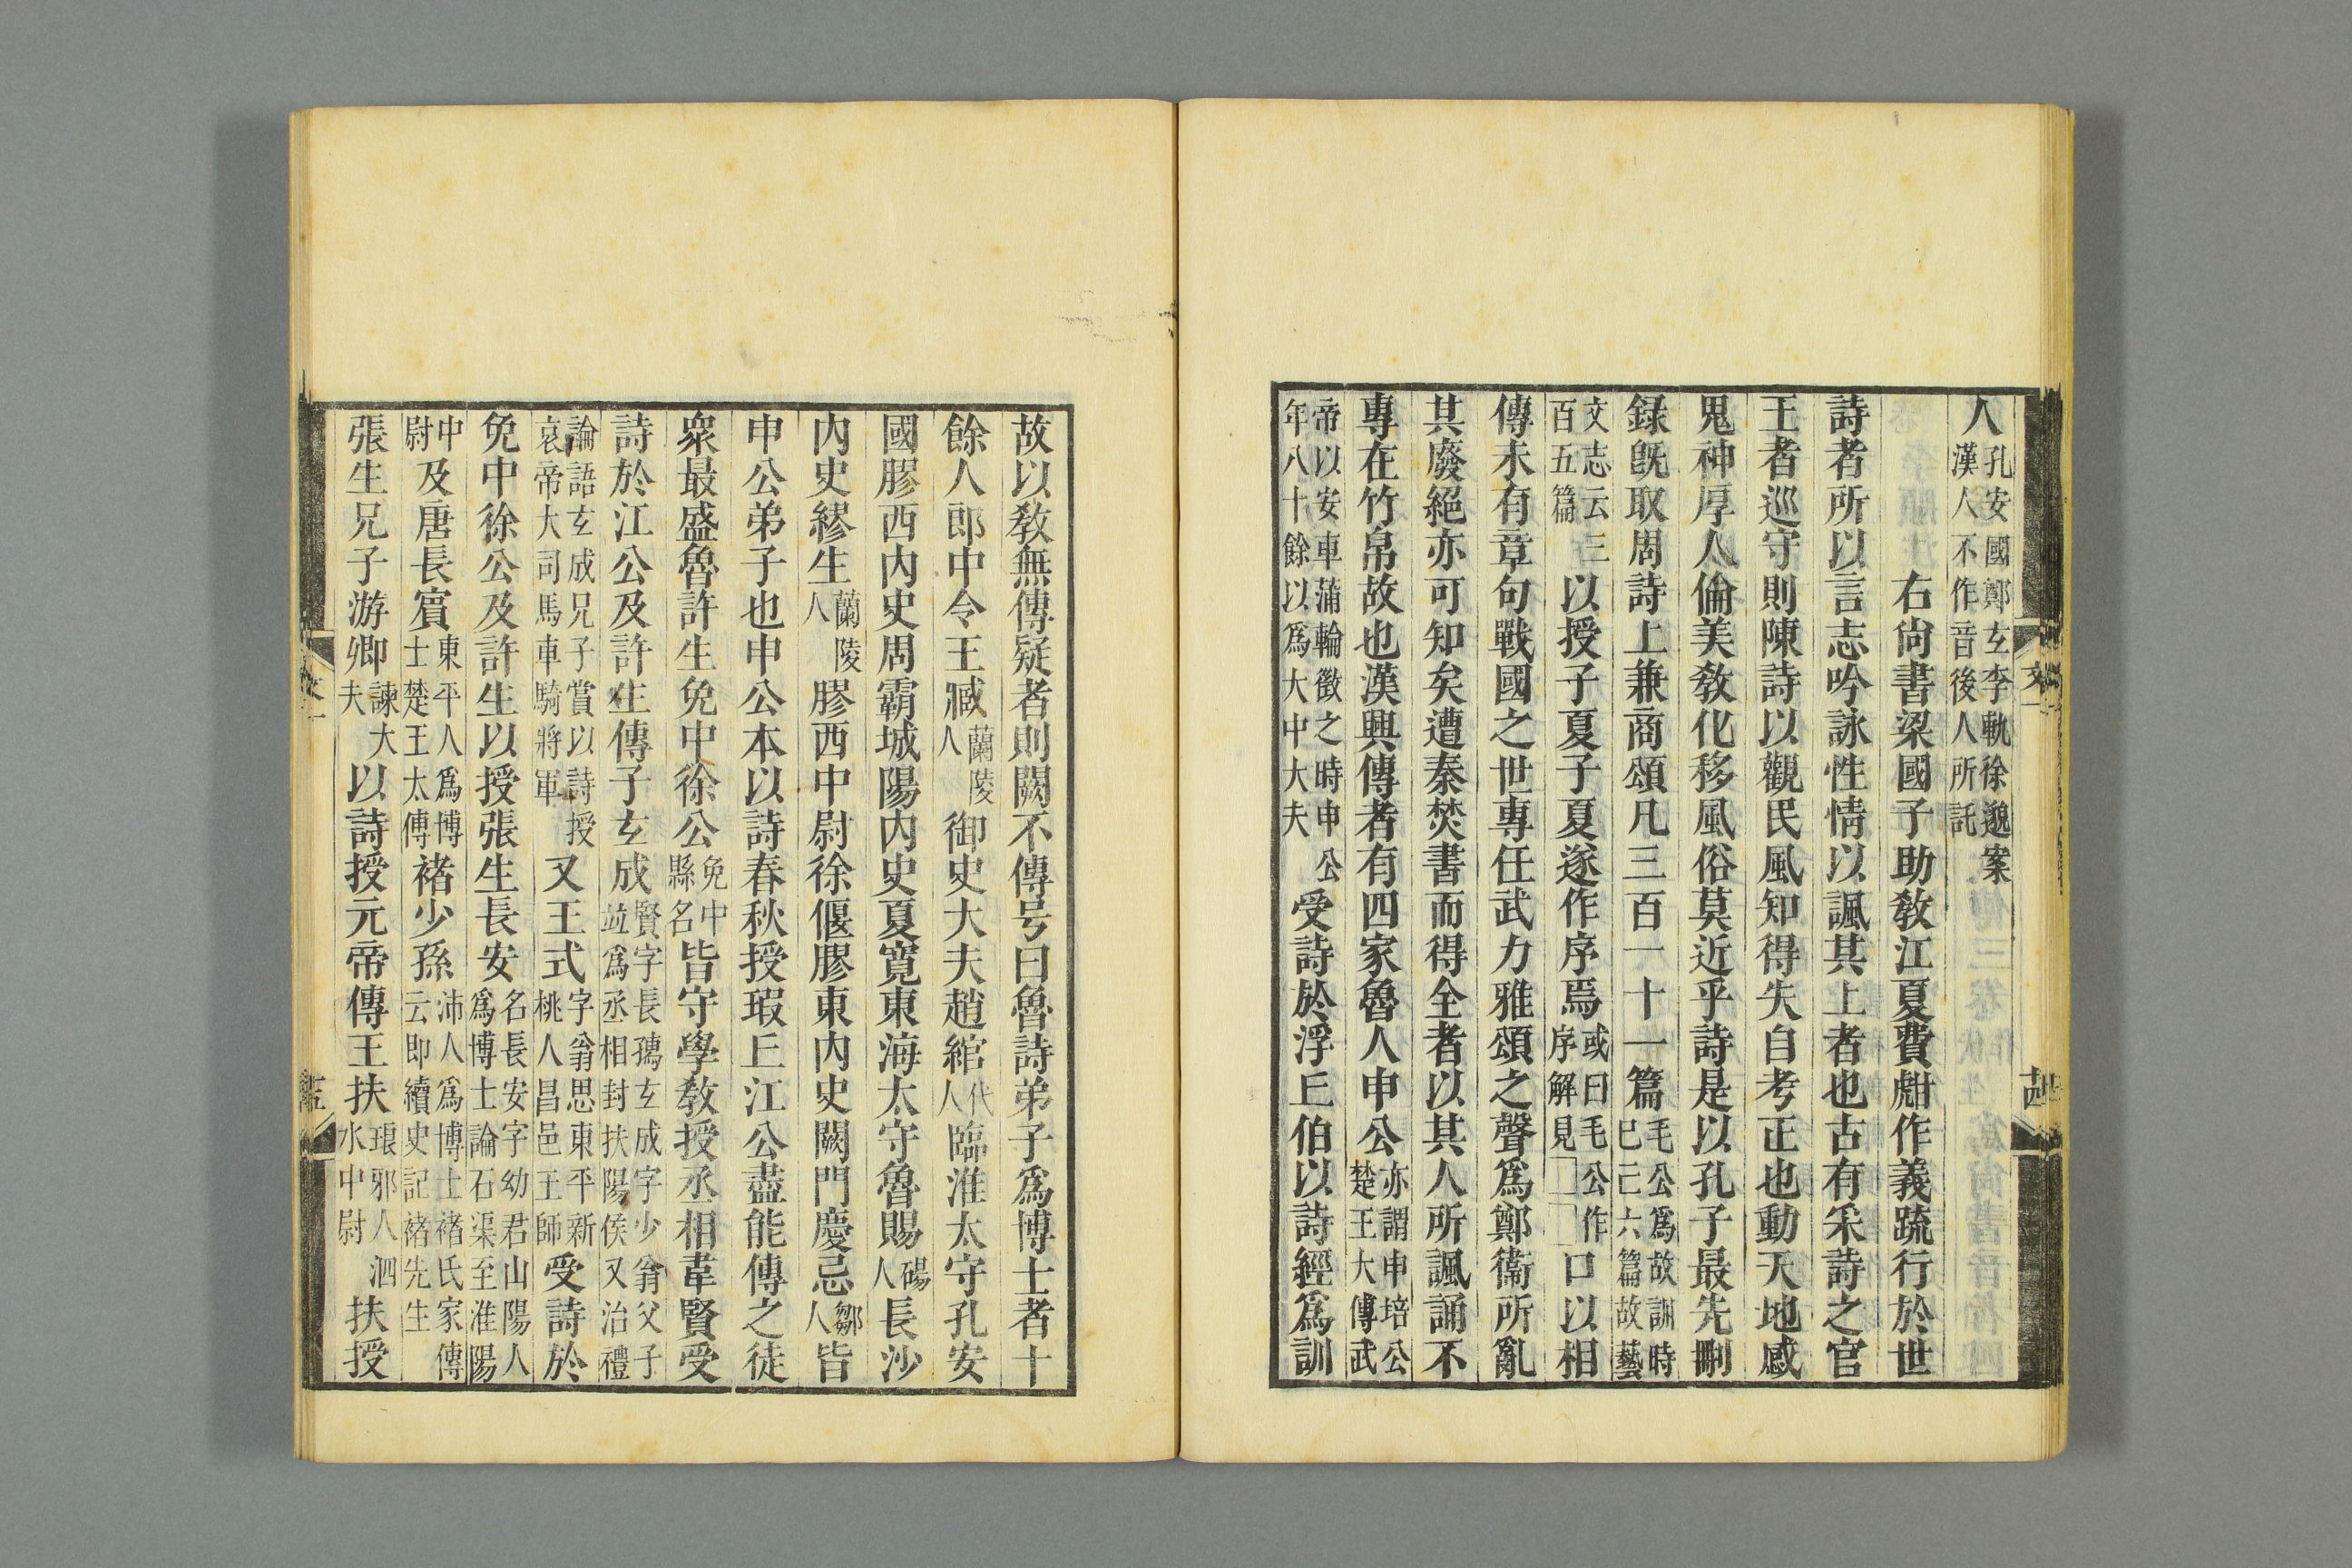 人孔安國鄭玄李軌徐邈案漢人不作音後人所託
右尙書梁國子助敎江夏費甝作義䟽行於世
詩者所以言志吟詠性情以諷其上者也古有采詩之官
王者巡守則陳詩以觀民風知得失自考正也動天地感
鬼神厚人倫美敎化移風俗莫近乎詩是以孔子最先刪
錄旣取周詩上兼商頌凡三百一十一篇毛公爲故訓時已亡六篇故藝
文志云三百五篇以授子夏子夏遂作序焉或曰毛公作序解見□□口以相
傳未有章句戰國之世專任武力雅頌之聲爲鄭衞所亂
其廢絕亦可知矣遭秦焚書而得全者以其人所諷誦不
專在竹帛故也漢興傳者有四家魯人申公亦謂申培公楚王大傅武
帝以安車蒲輪徵之時申公年八十餘以爲大中大夫受詩於浮丘伯以詩經爲訓
故以敎無傳疑者則闕不傳号曰魯詩弟子爲博士者十
餘人郎中令王臧蘭陵人御史大夫趙綰代人臨淮太守孔安
國膠西內史周霸城陽內史夏寬東海太守魯賜碭人長沙
內史繆生蘭陵人膠西中尉徐偃膠東內史闕門慶忌鄒人皆
申公弟子也申公本以詩春秋授瑕丘江公盡能傳之徒
衆最盛魯許生免中徐公免中縣名皆守學敎授丞相韋賢受
詩於江公及許生傳子玄成賢字長孺玄成字少翁父子竝爲丞相封扶陽侯又治禮
論語玄成兄子賞以詩授哀帝大司馬車騎將軍又王式字翁思東平新桃人昌邑王師受詩於
免中徐公及許生以授張生長安名長安字幼君山陽人爲博士論石渠至淮陽
中尉及唐長賓東平人爲博士楚王太傅褚少孫沛人爲博士褚氏家傳云即續史記褚先生
張生兄子游卿諫大夫以詩授元帝傳王扶琅邪人泗水中尉扶授